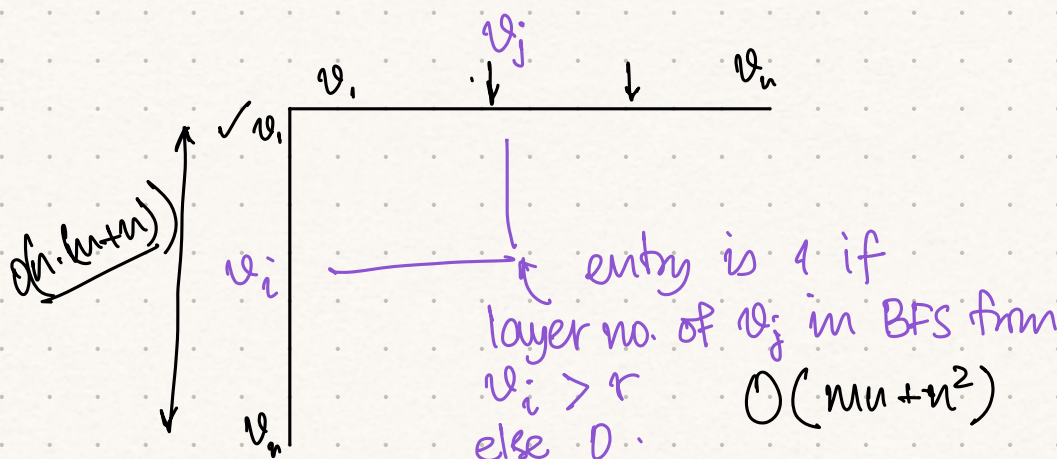 v_j
v_1 v_n
✓ v_1
O(n·(m+n))
v_i entry is 1 if
layer no. of v_j in BFS from
v_i > r O(mn+n²)
v_n else 0.